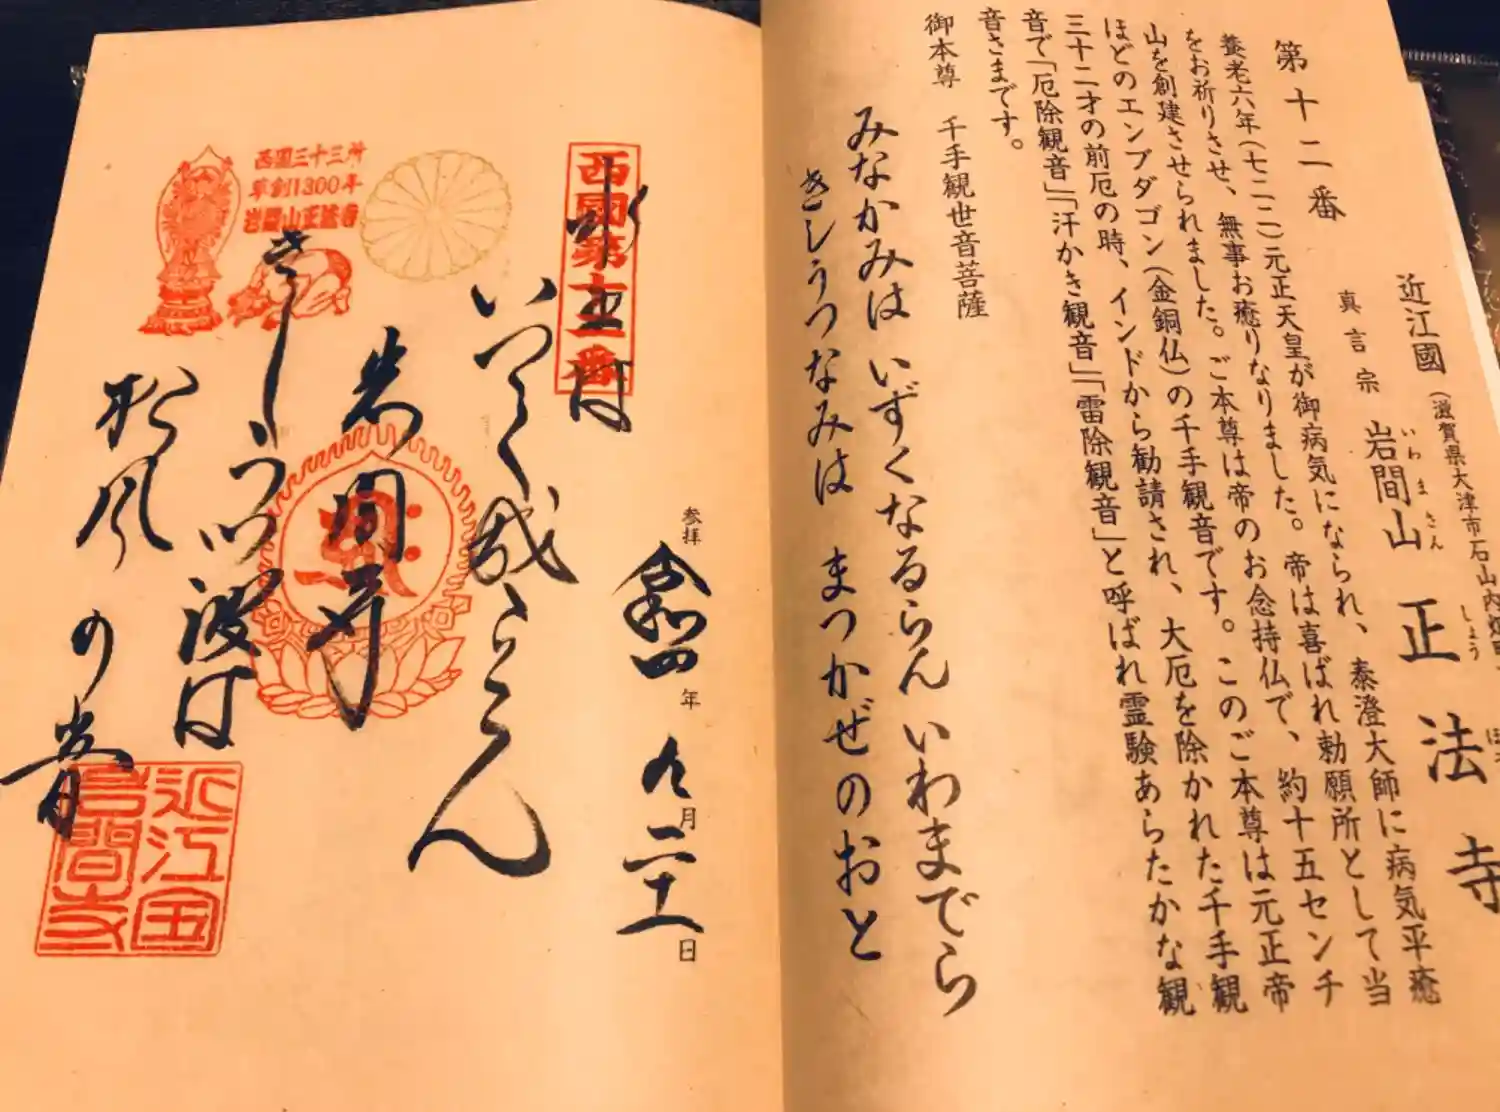 第十二番
近江國(滋賀県大津市石山内畑町
真言宗 岩間山 正法寺
いわまさん しょう ほう
養老六年(七二二)元正天皇が御病気になられ、泰澄大師に病気平癒
をお祈りさせ、無事お癒りなりました。帝は喜ばれ勅願所として当
山を創建させられました。ご本尊は帝のお念持仏で、約十五センチ
ほどのエンブダゴン(金銅仏)の千手観音です。このご本尊は元正帝
三十二才の前厄の時、インドから勧請され、大厄を除かれた千手観
音で「厄除観音」「汗かき観音」「雷除観音」と呼ばれ霊験あらたかな観
音さまです。
御本尊 千手観世音菩薩
みなかみは いずくなるらん いわまでら
きしうつなみは まつかぜのおと
参拝 令和四年 九月二十一日
西國第十二番
水上は
いつく成らん
岩間寺
きしうつ
波は
松風の音
西国三十三所
草創1300年
岩間山正法寺
近江国
岩間寺